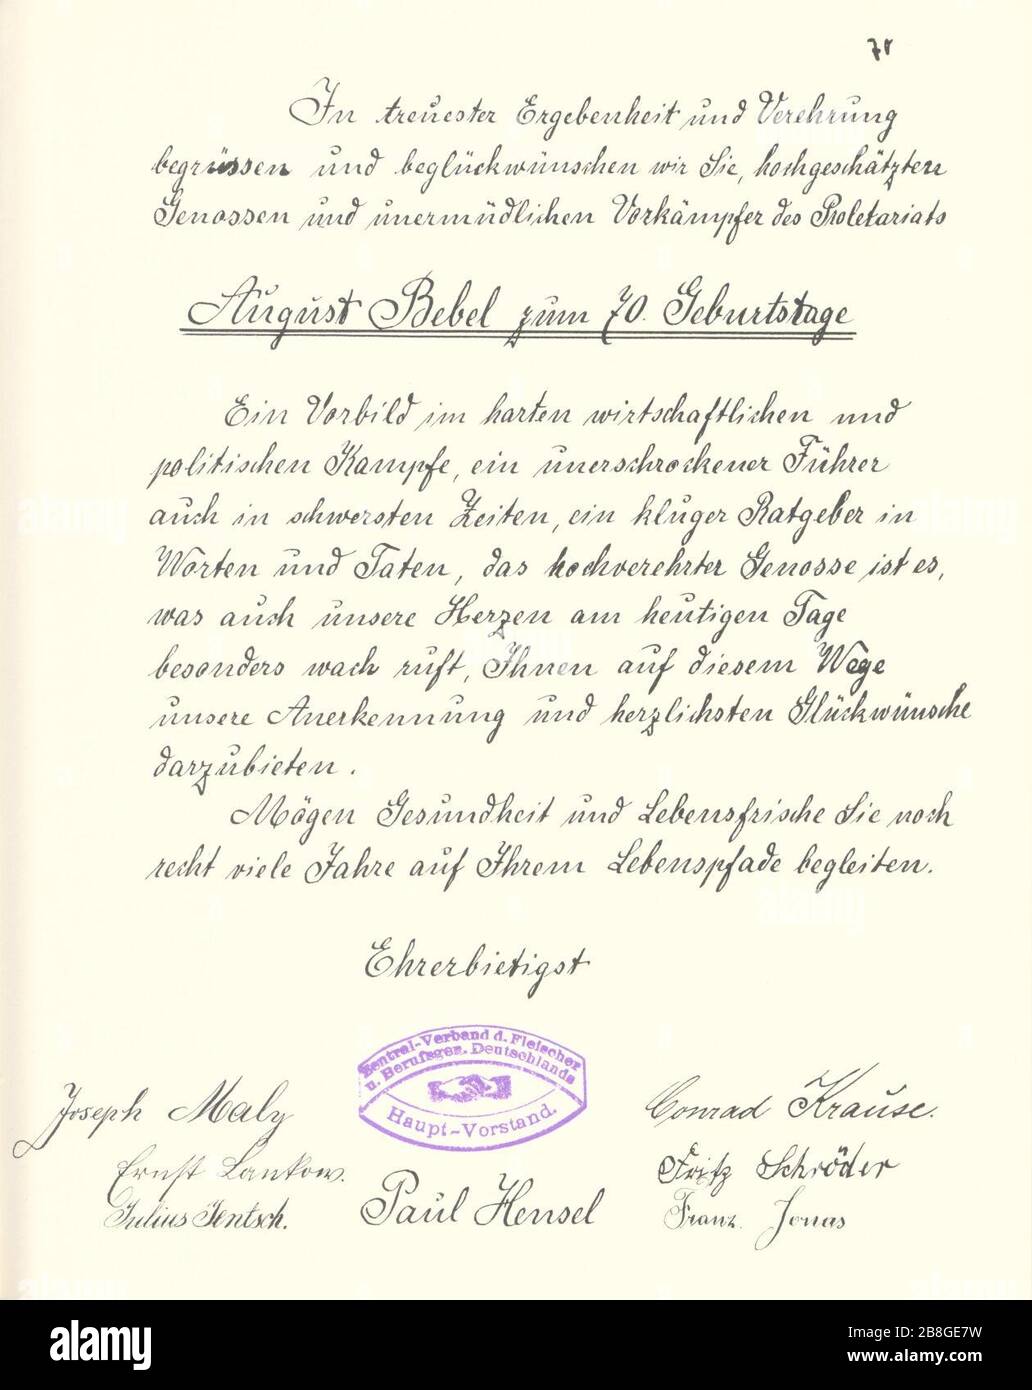 In treuester Ergebenheit und Verehrung
begrüssen und beglückwünschen wir Sie, hochgeschätzten
Genossen und unermüdlichen Vorkämpfer des Proletariats
August Bebel zum 70. Geburtstage
Ein Vorbild im harten wirtschaftlichen und
politischen Kampfe, ein unerschrockener Führer
auch in schwersten Zeiten, ein kluger Ratgeber in
Worten und Taten, das hochverehrter Genosse ist es,
was auch unsere Herzen am heutigen Tage
besonders wach ruft, Ihnen auf diesem Wege
unsere Anerkennung und herzlichsten Glückwünsche
darzubieten.
Mögen Gesundheit und Lebensfrische Sie noch
recht viele Jahre auf Ihrem Lebenspfade begleiten.
Ehrerbietigst
Zentral-Verband d. Fleischer
u. Berufsgen. Deutschlands
Haupt-Vorstand.
Joseph Maly
Conrad Krause.
Ernst Lankow.
Fritz Schröder
Julius Jentsch.
Paul Hensel
Franz Jonas
alamy
Image ID: 2B8GE7W
www.alamy.com